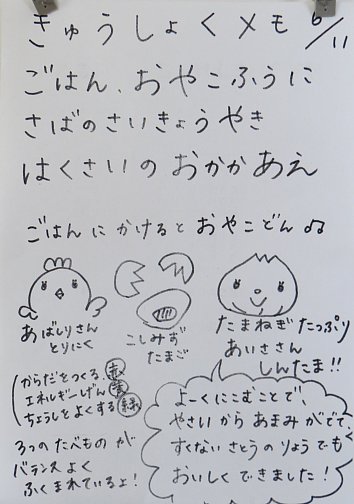 きゅうしょくメモ 6/11
ごはん、おやこふうに
さばのさいきょうやき
はくさいの おかかあえ
ごはんに かけると おやこどん♫
あばしりさん
とりにく
こしみず
たまご
たまねぎ たっぷり
あいささん
しんたま!!
からだをつくる 赤
エネルギーげん 黄
ちょうしとよくする 緑
3つの たべもの が
バランスよく
ふくまれているよ!
よーくにこむことで、
やさいから あまみがでて、
すくない さとうの りょうでも
おいしくできました!